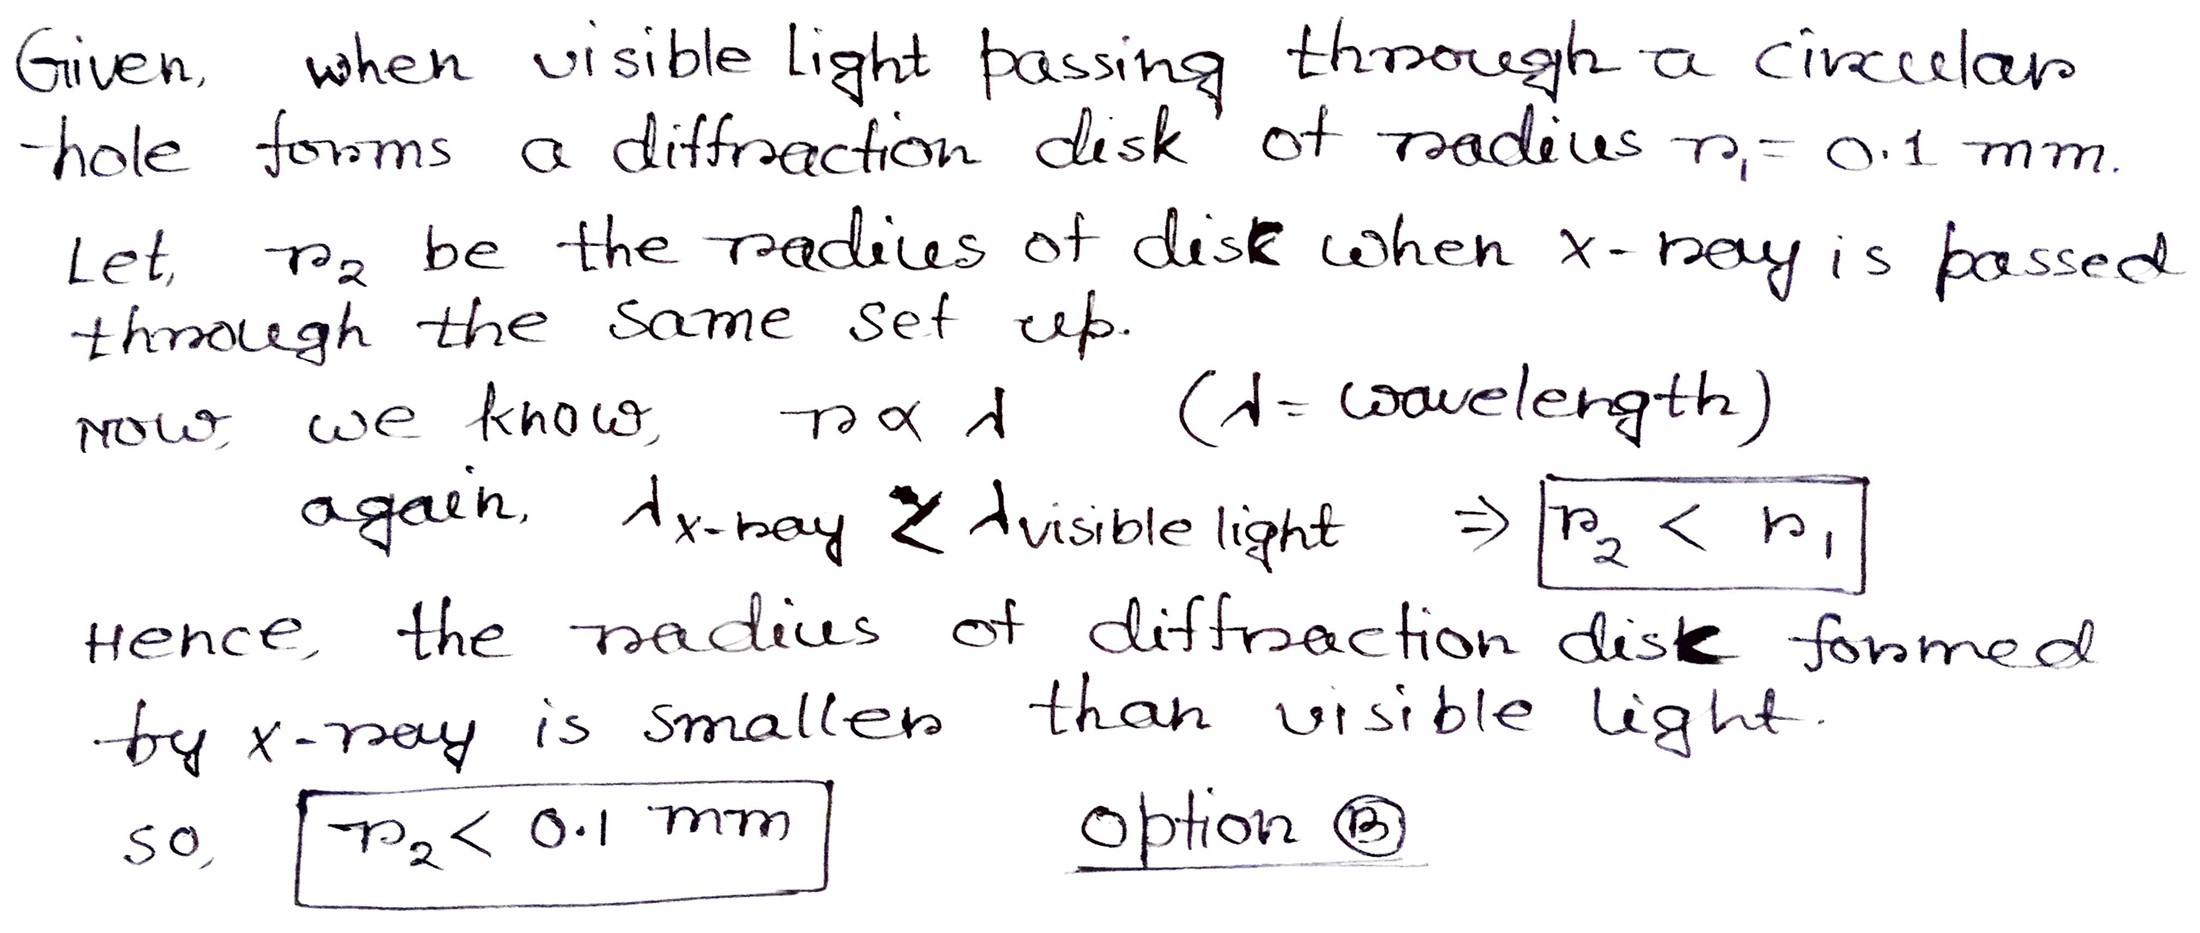 Given, when visible light passing through a circular
hole forms a diffraction disk of radius r₁ = 0.1 mm.
Let, r₂ be the radius of disk when x-ray is passed
through the same set up.
Now, we know, r ∝ λ (λ = wavelength)
again, λx-ray < λvisible light ⇒ r₂ < r₁
Hence, the radius of diffraction disk formed
by x-ray is smaller than visible light.
so, r₂ < 0.1 mm option Ⓑ